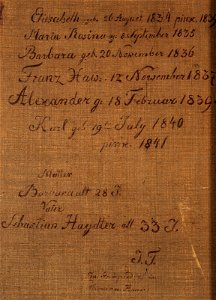 Elisabeth geb. 26 August 1834
Maria Rosina g. 8 September 1835
Barbara geb. 20 November 1836
Franz Xav. 12 November 1837
Alexander g. 18 Februar 1839
Karl geb. 19ten July 1840
pinx. 1841
Mutter
Barbara alt 28 J.
Vater
Sebastian Haydter alt 33 J.
J. F.